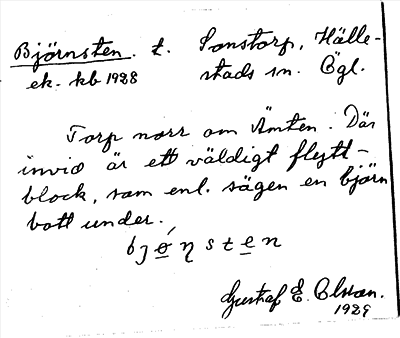 Björnsten. t. Sonstorp, Hälle-
ek. kb 1928 stads sn. Ögl.
Torp norr om Ämten. Där
invid är ett väldigt flytt-
block, som enl. sägen en björn
bott under.
Gustaf E. Olsson.
1929